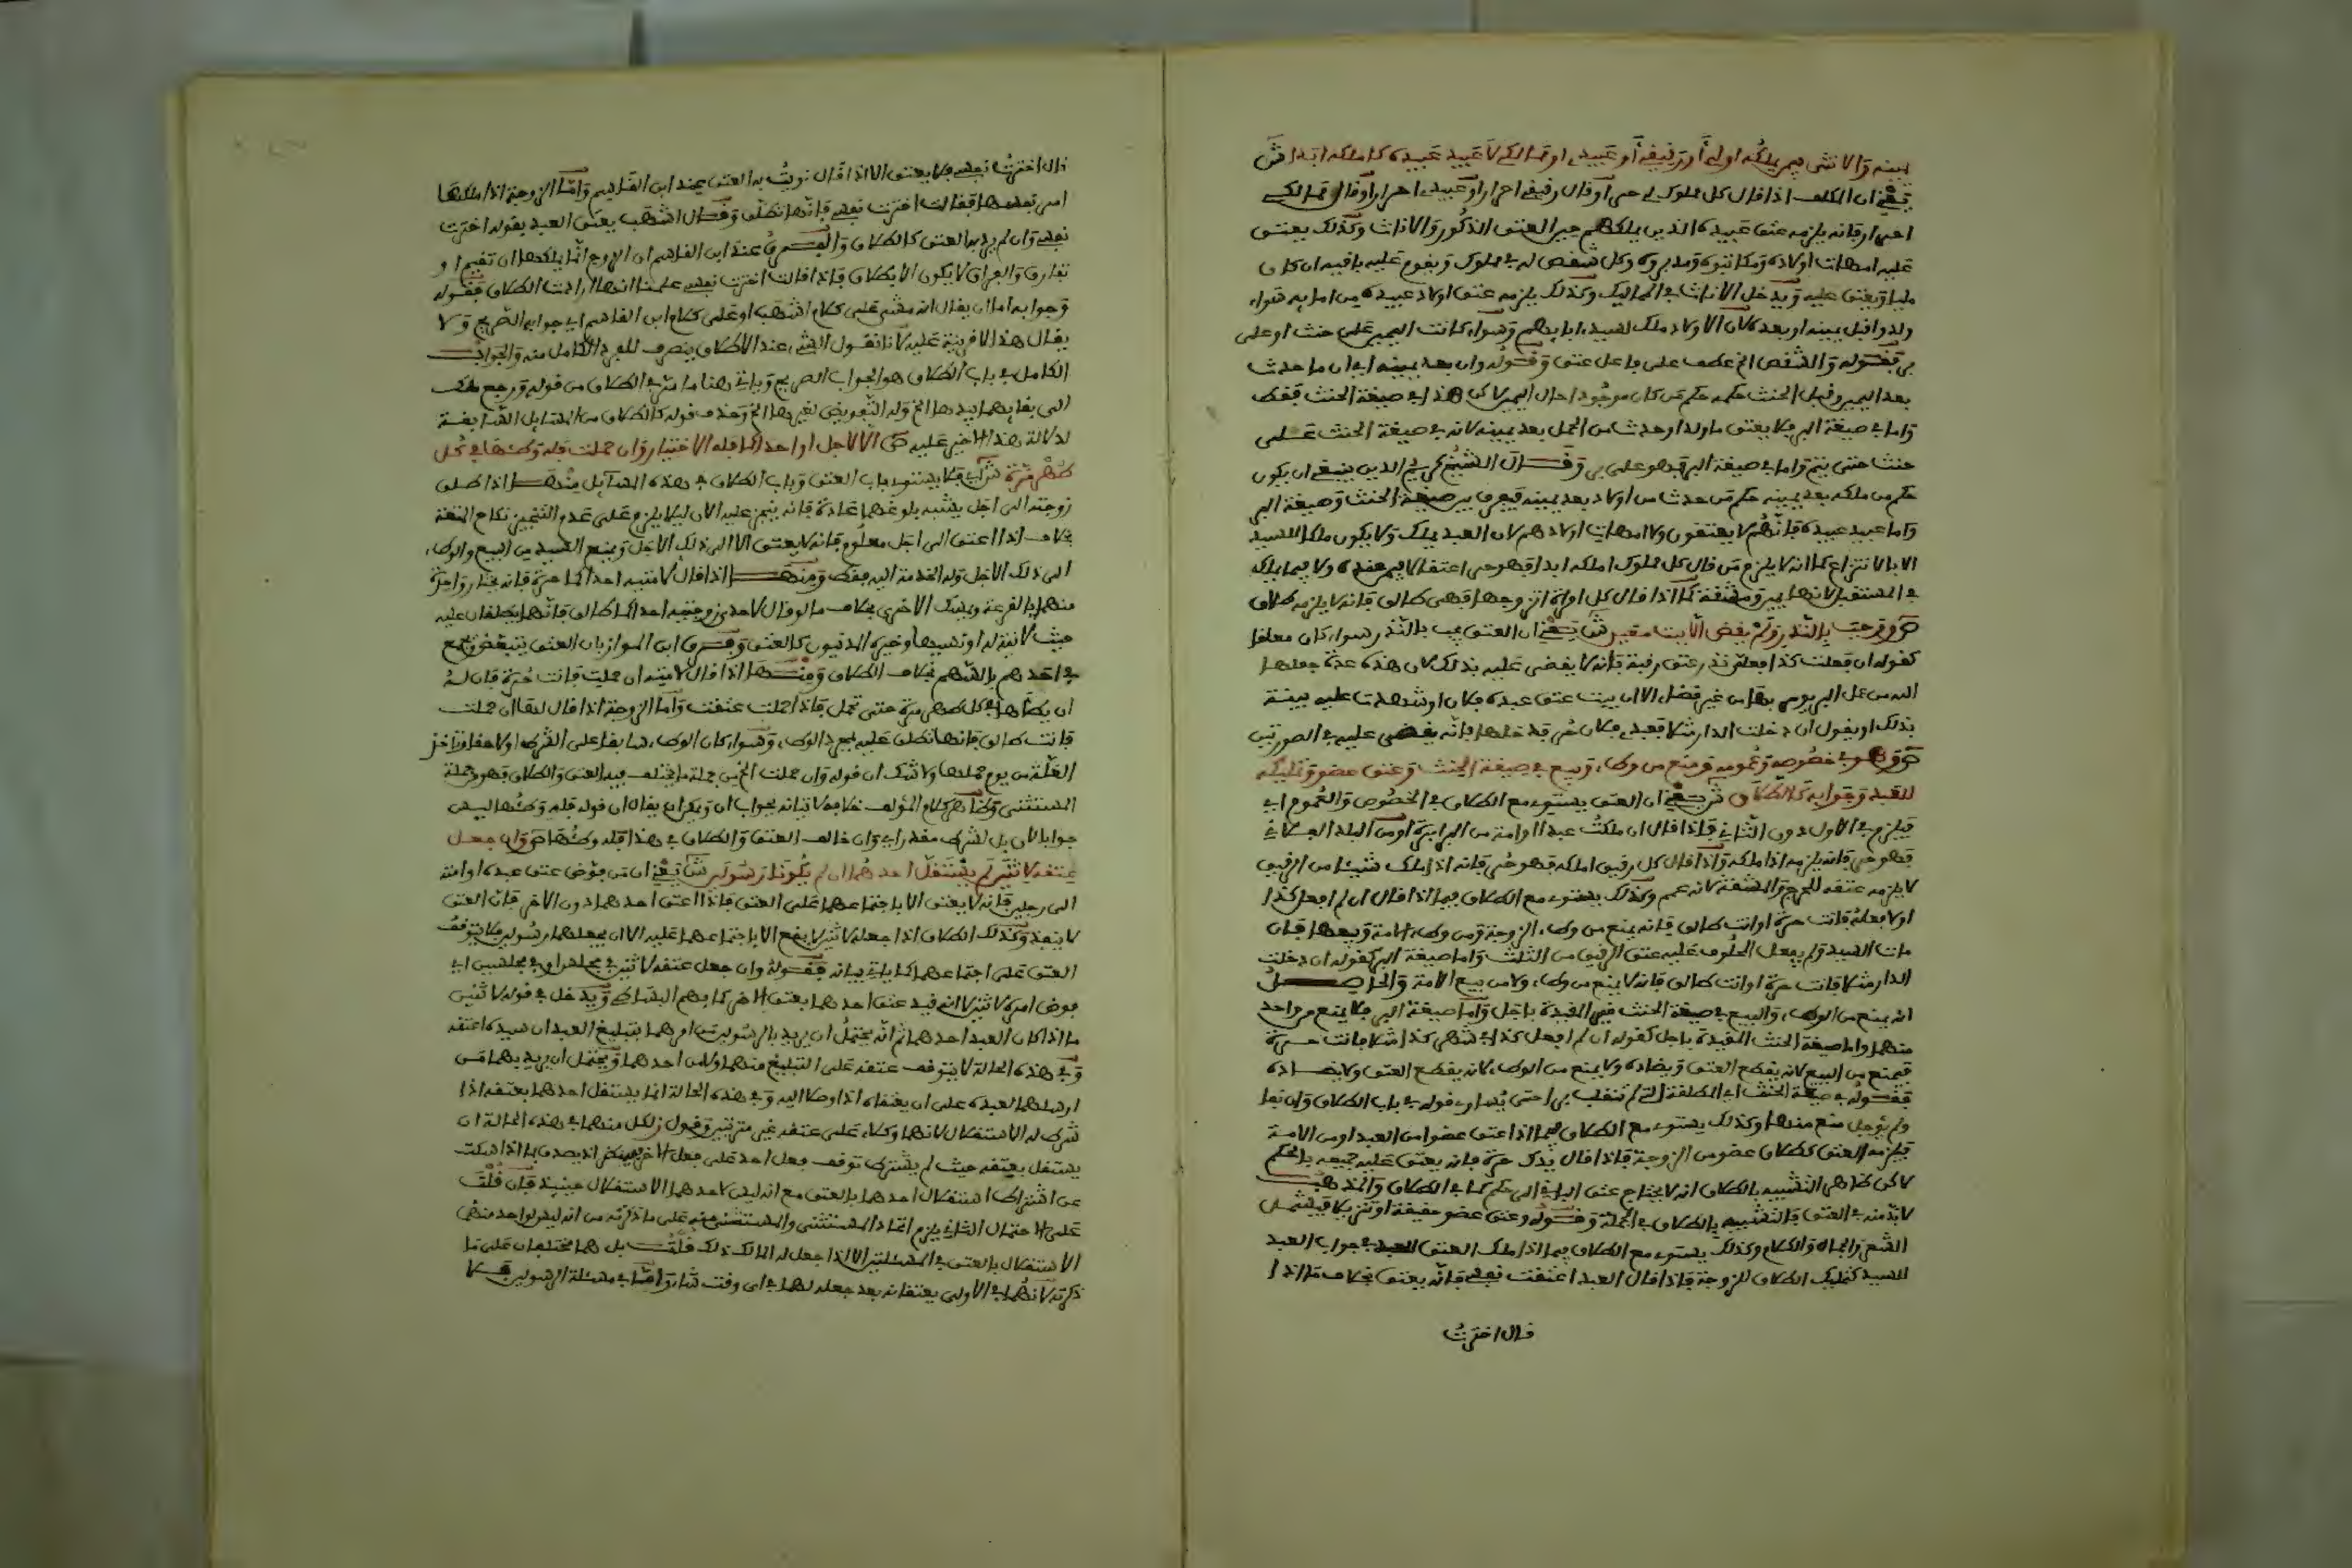 يمينه والانثى فيمن يملكه اولى أو رقيقي أو عبيدي او مماليكي لا عبيد عبيده كاملكه ابدا ش
يعني ان المكلف اذا قال كل مملوك لي حر أو قال رقيقي احرار أو عبيدي احرار أو قال مماليكي
احرار فانه يلزمه عتق عبيده الذين يملكهم حين العتق الذكور والاناث وكذلك يعتق
عليه امهات اولاده ومكاتبوه ومدبروه وكل شقص له في مملوك ويقوم عليه باقيه ان كان
مليا ويعتق عليه ويدخل الاناث في المماليك وكذلك يلزمه عتق اولاد عبيده من امايهم سواء
ولدوا قبل يمينه او بعده لان الاولاد ملك لسيد ابايهم وسواء كانت اليمين على حنث او على
بر فقوله والشقص الخ عطف على فاعل عتق وقوله وان بعد يمينه اي ان ما حدث
بعد اليمين وقبل الحنث حكمه حكم من كان موجودا حال اليمين لاكن هذا في صيغة الحنث فقط
واما في صيغة البر فلا يعتق ما ولد او حدث من الحمل بعد يمينه لانه في صيغة الحنث على
حنث حتى يبر واما في صيغة البر فهو على بر وقال الشيخ كريم الدين ينبغي ان يكون
حكم من ملكه بعد يمينه حكم من حدث من اولاد بعد يمينه فيفرق بين صيغة الحنث وصيغة البر
واما عبيد عبيده فانهم لا يعتقون ولا امهات اولادهم لان العبد يملك ولا يكون ملكا للسيد
الا بالانتزاع كما انه لا يلزم من قال كل مملوك املكه ابدا فهو حر اعتقا لا فيمن عنده ولا فيما يملكه
في المستقبل لانها يمين ومشقة كما اذا قال كل امراة اتزوجها فهي طالق فانه لا يلزمه طلاق
ص ووجب بالنذر ولم يقض الا ببت معين ش يعني ان العتق يجب بالنذر سواء كان معلقا
كقوله ان فعلت كذا فعلي نذر عتق رقبة فانه لا يقضى عليه بذلك لان هذه عدة جعلها
لله من عمل البر يومر بها من غير قضا الا ان يبت عتق عبده فلان او شهدت عليه بينة
بذلك او يقول ان دخلت الدار مثلا فعبدي فلان حر فدخلها فانه يقضى عليه في الصورتين
ص وهو في خصوصه وعمومه ومنع من وطء وبيع في صيغة الحنث وعتق عضو وتمليكه
للعبد وجوابه كالطلاق ش يعني ان العتق يستوي مع الطلاق في الخصوص والعموم اي
فيلزم في الاول دون الثاني فاذا قال ان ملكت عبدا او امة من البرابرة او من البلد الفلاني
فهو حر فانه يلزمه اذا ملكه واذا قال كل رقيق املكه فهو حر فانه اذا ملك شيئا من الرقيق
لا يلزمه عتقه للحرج والمشقة لانه عمم وكذلك يستوي مع الطلاق فيما اذا قال ان لم افعل كذا
او لا فعلته فانت حرة او انت طالق فانه يمنع من وطء الزوجة ومن وطء الامة وبيعها فان
مات السيد ولم يفعل المحلوف عليه عتق الرقيق من الثلث واما صيغة البر كقوله ان دخلت
الدار مثلا فانت حرة او انت طالق فانه لا يمنع من وطء ولا من بيع الامة والحاصل
انه يمنع من الوطء والبيع في صيغة الحنث غير المقيدة باجل واما صيغة البر فلا يمنع من واحد
منهما واما صيغة الحنث المقيدة باجل كقوله ان لم افعل كذا في شهر كذا مثلا فانت حرة
فيمنع من البيع لانه يقطع العتق ويضاده ولا يمنع من الوطء لانه يقطع العتق ولا يضاده
فقوله في صيغة الحنث اي المطلقة التي لم تنقلب بر احتى يساوي قوله في باب الطلاق وان نفا
ولم يؤجل منع منها وكذلك يستوي مع الطلاق فيما اذا عتق عضوا من العبد او من الامة
فيلزمه العتق كطلاق عضو من الزوجة فاذا قال يدك حرة فانه يعتق عليه جميعه بالحكم
لاكن ظاهر التشبيه بالطلاق انه لا يحتاج عتق الباقي الى حكم كما في الطلاق والمذهب
لا بد منه في العتق فالتشبيه بالطلاق في الجملة وقوله وعتق عضو حقيقة او تنزيلا فيشمل
الشعر والجمال والكلام وكذلك يستوي مع الطلاق فيما اذا ملك العتق للعبد في جواب العبد
للسيد كتمليك الطلاق للزوجة فاذا قال العبد اعتقت نفسي فانه يعتق بخلاف ما اذا
قال اخترت
قال اخترت نفسي فلا يعتق الا اذا قال نويت به العتق عند ابن القاسم واما الزوجة اذا ملكها
امر نفسها فقالت اخترت نفسي فانها تطلق وقال اشهب يعتق العبد بقوله اخترت
نفسي وان لم يرد به العتق كالطلاق والفرق عند ابن القاسم ان الزوج انما يملكها ان تقيم او
تفارق والفراق لا يكون الا بطلاق فاذا قالت اخترت نفسي علمنا انها ارادت الطلاق فقوله
وجوابه اما ان يقال انه مشى على كلام اشهب او على كلام ابن القاسم اي جوابه الصريح ولا
يقال هذا لا قرينة عليه لانا نقول الشيء عند الاطلاق ينصرف للفرد الكامل منه والجواب
الكامل في باب الطلاق هو الجواب الصريح وياتي هنا ما مر في الطلاق من قوله ورجع مالك
الى بقايهما بيدها الخ وله التفويض لغيرها الخ وحذف قوله كالطلاق من المسايل السابقة
لدلالة هذا الاخير عليه ص الا لاجل او احداكما فله الاختيار وان حملت فله وطئها في كل
طهر مرة ش اي فلا يستوي باب العتق وباب الطلاق في هذه المسآيل منها اذا طلق
زوجته الى اجل يشبه بلوغهما عادة فانه ينجز عليه الان ليلا يلزم على عدم التنجيز نكاح المتعة
بخلاف اذا اعتق الى اجل معلوم فانه لا يعتق الا الى ذلك الاجل ويمنع السيد من البيع والوطء
الى ذلك الاجل وله الخدمة اليه فقط ومنها اذا قال لامتيه احداكما حرة فانه يختار واحدة
منهما بالقرعة ويمسك الاخرى بخلاف ما لو قال لاحدى زوجتيه احداكما طالق فانهما يطلقان عليه
حيث لا نية له او نسيها وخيره المدنيون كالعتق وفرق ابن المواز بان العتق يتبعض ويجمع
في احدهم بالسهم بخلاف الطلاق ومنها اذا قال لامته ان حملت فانت حرة فان له
ان يطأها في كل طهر مرة حتى تحمل فاذا حملت عتقت واما الزوجة اذا قال لها ان حملت
فانت طالق فانها تطلق عليه بمجرد الوطء وسواء كان الوطء سابقا على الشرط او لاحقا وتاخذ
الغلة من يوم حملها ولا شك ان قوله وان حملت الخ من جملة ما يختلف فيه العتق والطلاق فهو من جملة
المستثنى وظاهر كلام المؤلف خلافه لاتيانه بجواب ان ويمكن ان يقال ان قوله فله وطئها ليس
جوابا لان بل لشرط مقدر اي وان خالف العتق والطلاق في هذا فله وطئها ص وان جعل
عتقه لاثنين لم يستقل احدهما ان لم يكونا رسولين ش يعني ان من فوض عتق عبده او امته
الى رجلين فانه لا يعتق الا باجتماعهما على العتق فاذا اعتق احدهما دون الاخر فان العتق
لا ينفذ وكذلك الطلاق اذا جعله لاثنين لا يقع الا باجتماعهما عليه الا ان يجعلهما رسولين فلا يتوقف
العتق على اجتماعهما كما ياتي بيانه فقوله وان جعل عتقه لاثنين في مجلس او في مجلسين اي
فوض امره لاثنين لا انه قيد عتق احدهما بعتق الاخر كما فهم البساطي ويدخل في قوله لاثنين
ما اذا كان العبد احدهما ثم انه يحتمل ان يريد بالرسولين من امرهما بتبليغ العبد ان سيده اعتقه
وفي هذه الحالة لا يتوقف عتقه على التبليغ منهما ولا من احدهما ويحتمل ان يريد بهما من
ارسلهما لعبده على ان يعتقاه اذا وصلا اليه وفي هذه الحالة انما يستقل احدهما بعتقه اذا
شرط له الاستقلال لانهما وكلاء على عتقه غير مترتبين وقبول كل منهما في هذه الحالة ان
يستقل بعتقه حيث لم يشترط توقف فعل احد على فعل الاخر اذ يصدق بما اذا سكت
عن اشتراط استقلال احدهما بالعتق مع انه ليس لاحدهما الاستقلال حينيذ فان قلت
على الاحتمال الثاني يلزم اتحاد المستثنى والمستثنى منه على ما ذكرته من انه ليس لواحد منهما
الاستقلال بالعتق في المسئلتين الا اذا جعل له المالك ذلك قلت بل هما مختلفان على ما
ذكرته لانهما في الاولى يعتقانه بعد جعله لهما في اي وقت شاءا واما في مسئلة الرسولين فلا